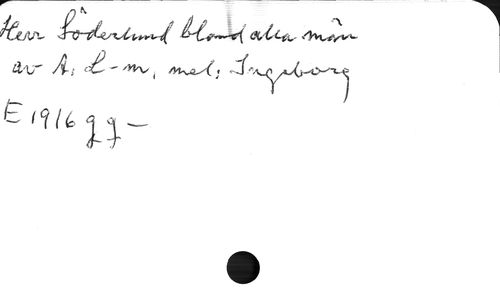 Herr Söderlund bland alla män
av A. L-m, mel: Ingeborg
E 1916 g g -